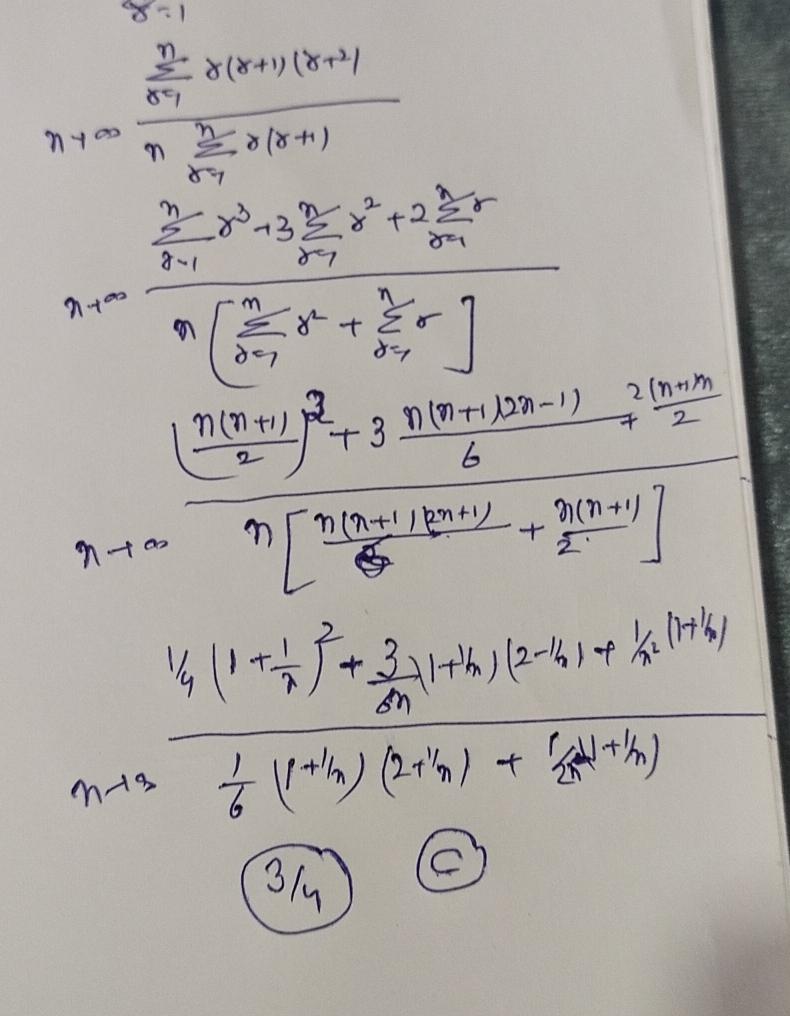 r=1
n→∞ \frac{\sum_{r=1}^{n} r(r+1)(r+2)}{n \sum_{r=1}^{n} r(r+1)}
n→∞ \frac{\sum_{r=1}^{n} r^3 + 3\sum_{r=1}^{n} r^2 + 2\sum_{r=1}^{n} r}{n [ \sum_{r=1}^{n} r^2 + \sum_{r=1}^{n} r ]}
n→∞ \frac{(\frac{n(n+1)}{2})^2 + 3 \frac{n(n+1)(2n-1)}{6} + \frac{2(n+1)n}{2}}{n [ \frac{n(n+1)(2n+1)}{6} + \frac{n(n+1)}{2} ]}
n→∞ \frac{1/4 (1+\frac{1}{n})^2 + \frac{3}{6n}(1+1/n)(2-1/n) + 1/n^2 (1+1/n)}{\frac{1}{6}(1+1/n)(2+1/n) + \frac{1}{2n}(1+1/n)}
3/4 C